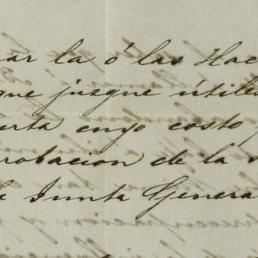 ar la ó las Hac
que juzgue útiles
erta cuyo costo
robacion de la
la Junta Genera